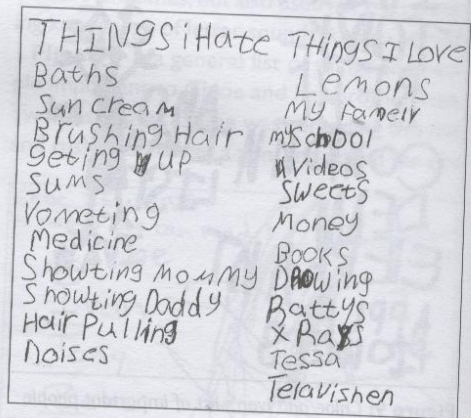 THINGS i Hate
Baths
Sun cream
Brushing Hair
geting up
Sums
Vometing
Medicine
Showting Mommy
Showting Daddy
Hair Pulling
noises
THings I Love
Lemons
My Famely
my SchOOl
Videos
Sweets
Money
Books
Drowing
Rattys
X Rays
Tessa
Telavishen